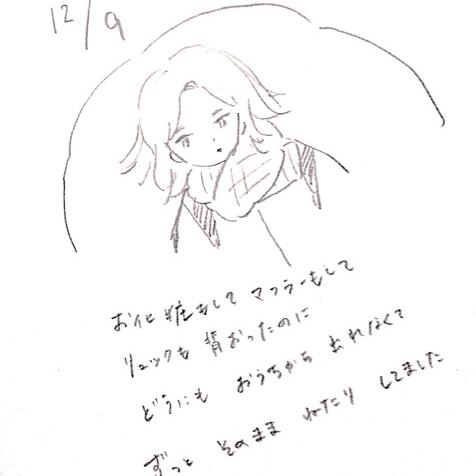 12/9
お化粧もして マフラーもして
リュックも 背おったのに
どうにも おうちから 出れなくて
ずっと そのまま ねたり してました